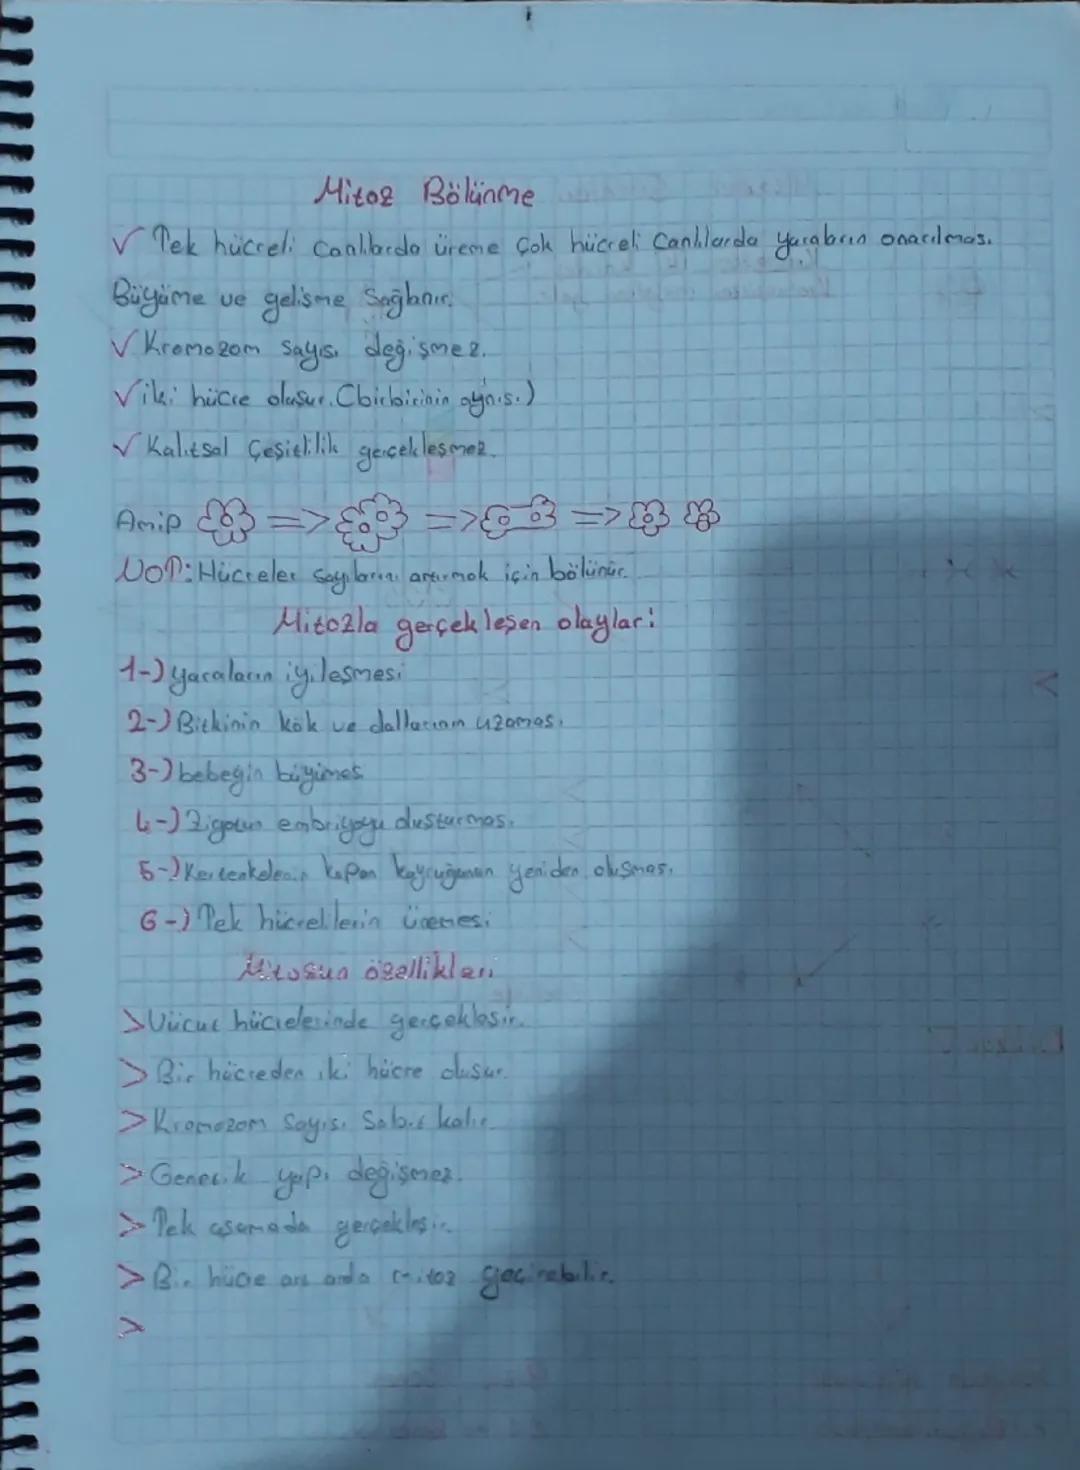 Mitoz Bölünme
√ Tek hücreli Canlılarda üreme Çok hücreli Canlılarda yaraların onarılması
Büyüme ve gelişme Sağlanır.
√ Kromozom sayısı değişmez.
√ iki hücre oluşur. (birbirinin aynısı)
√ Kalıtsal Çeşitlilik gerçekleşmez.
Amip => => =>
NOT: Hücreler sayılarını artırmak için bölünür.
Mitozla gerçekleşen olaylar:
1-) yaraların iyileşmesi
2-) Bitkinin kök ve dallarının uzaması
3-) bebeğin büyümes
4-) Zigotun embriyoyu oluşturması
5-) Kertenkelenin kopan kuyruğunun yeniden oluşması
6-) Tek hücrelilerin üremesi
Mitozun özellikleri
> Vücut hücrelerinde gerçekleşir.
> Bir hücreden iki hücre oluşur.
> Kromozom Sayısı Sabit kalır.
> Genetik yapı değişmez.
> Tek aşamada gerçekleşir.
> Bir hücre art arda mitoz geçirebilir.
>